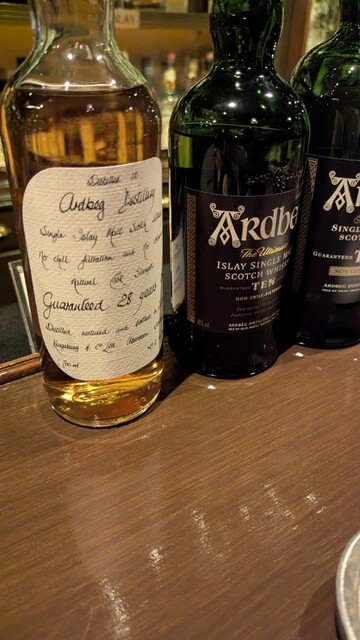 Distilled at
Ardbeg Distillery
Single Islay Malt Scotch
No chill filtration and No
Natural Cask Strength
Guaranteed 28 years
Distilled, matured and bottled in
Kingsbury & Co Ltd. Aberdeen
700 ml
Ardbe
The Ultimate
ISLAY SINGLE MA
SCOTCH WHISK
GUARANTEED TEN
NON CHILL-FILTERED
ARDBEG
Ar
SINGL
SCO
GUARANTEED T
NON CHI
ARDBEG DIS
LAY